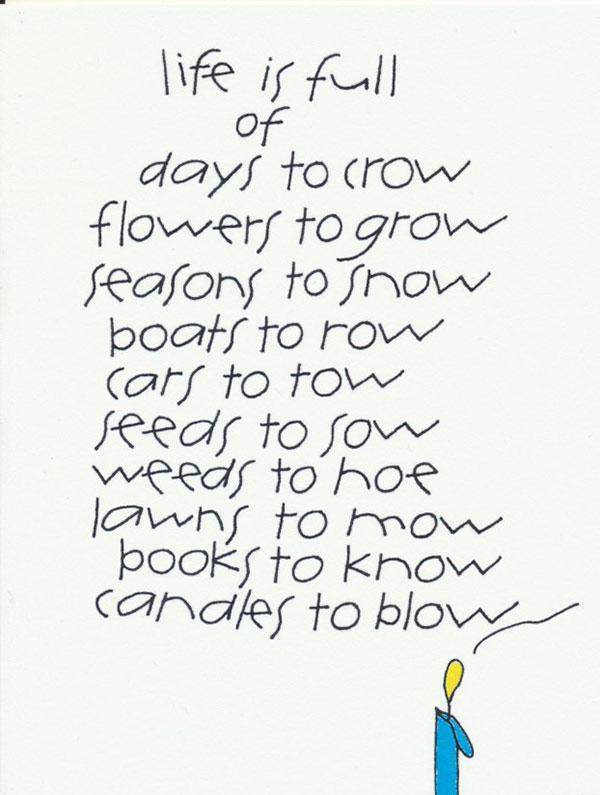 life is full
of
days to crow
flowers to grow
seasons to snow
boats to row
cars to tow
seeds to sow
weeds to hoe
lawns to mow
books to know
candles to blow